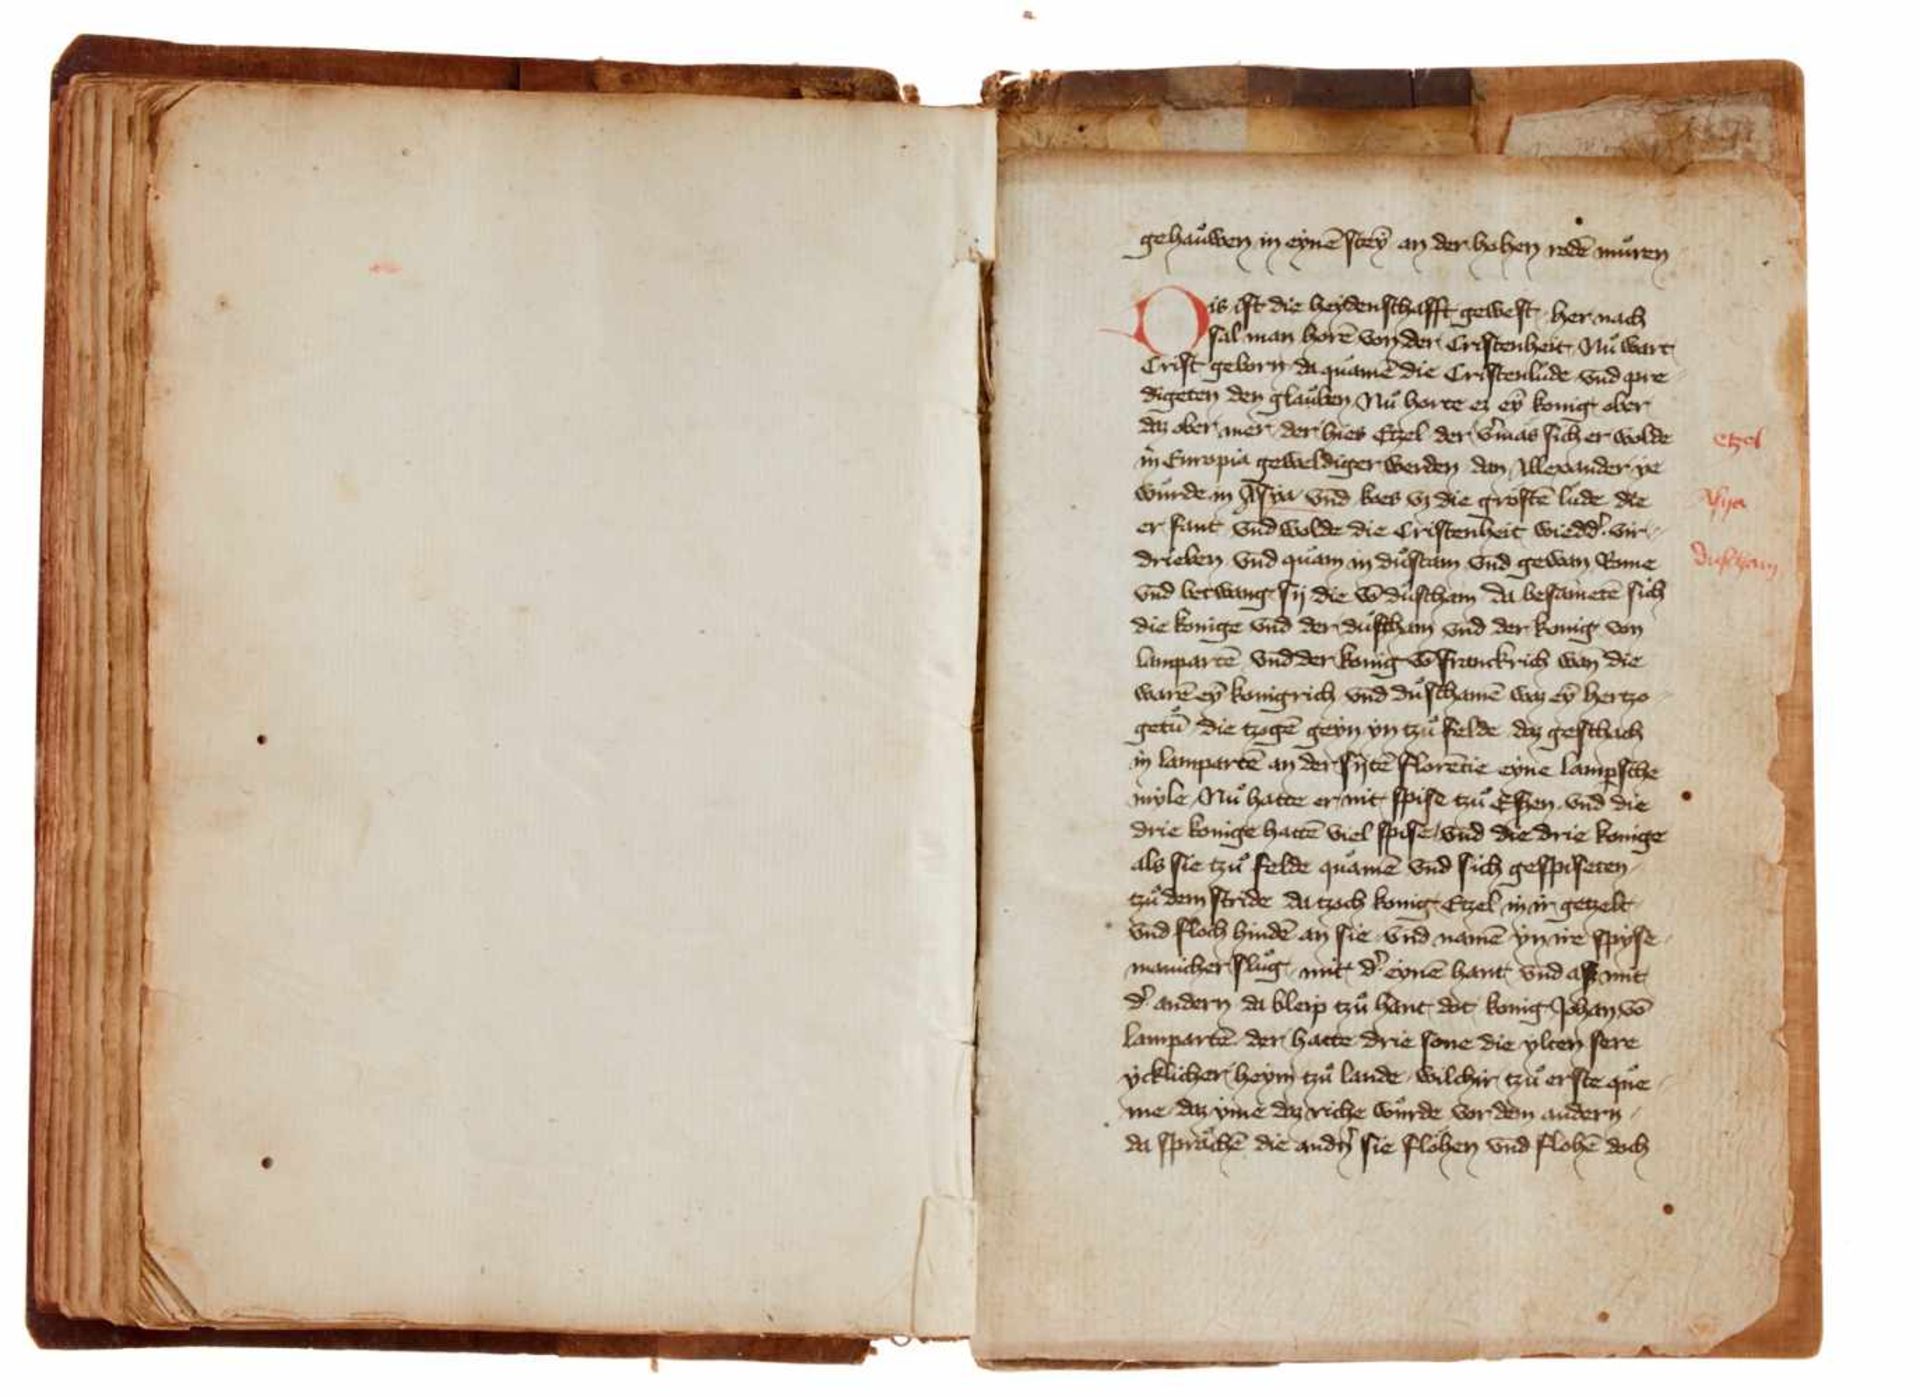 gehaůwen in eynē steȳ an der hohen rodē můren
Dis ist die heydenschafft gewest her nach
sal man horē von der Cristenheit Nů wart
Crist geborn da quamē die Cristenlude vnd pre
digeten den glauben Nů horte es eȳ konig ober
daz ober mer der hies Etzel der v'mas sich er wolde
in Europia geweldiger werden dan Allexander ye
wůrde in Asya vnd koes vz die grostē lude die
er fant vnd wolde die Cristenheit wiedd' vir
drieben vnd quam in důscam vnd gewan Rome
vnd betwang sij die vō duscham da besametē sich
die konige vnd der duscham vnd der konig von
lampartē vnd der konig vō franckrich wan die
warē eȳ konigrich vnd důschamē waz eȳ hertzo
getů die tzogē geyn yn tzů felde daz geschach
in lampartē an der sijtē florētie eyne lampsche
myle Nů hatte er nit spise tzů Eßen vnd die
drie konige hattē viel spise vnd die drie konige
als sie tzů felde quamē vnd sich gespiseten
tzů dem stride da tzoch konig Etzel in ir getzelt
vnd floch hindē an sie vnd namē yn ire spyse
manicher slůg mit d' eynē hant vnd aß mit
d' andern da bleip tzů hant dot konig Johan vō
lampartē der hatte drie sone die ylten sere
ycklicher heym tzů lande wilchir tzů erste que
me daz yme daz riche wůrde vor den andern
da sprachē die and'n sie flohen vnd flohē doch
etzel
Asya
duscham